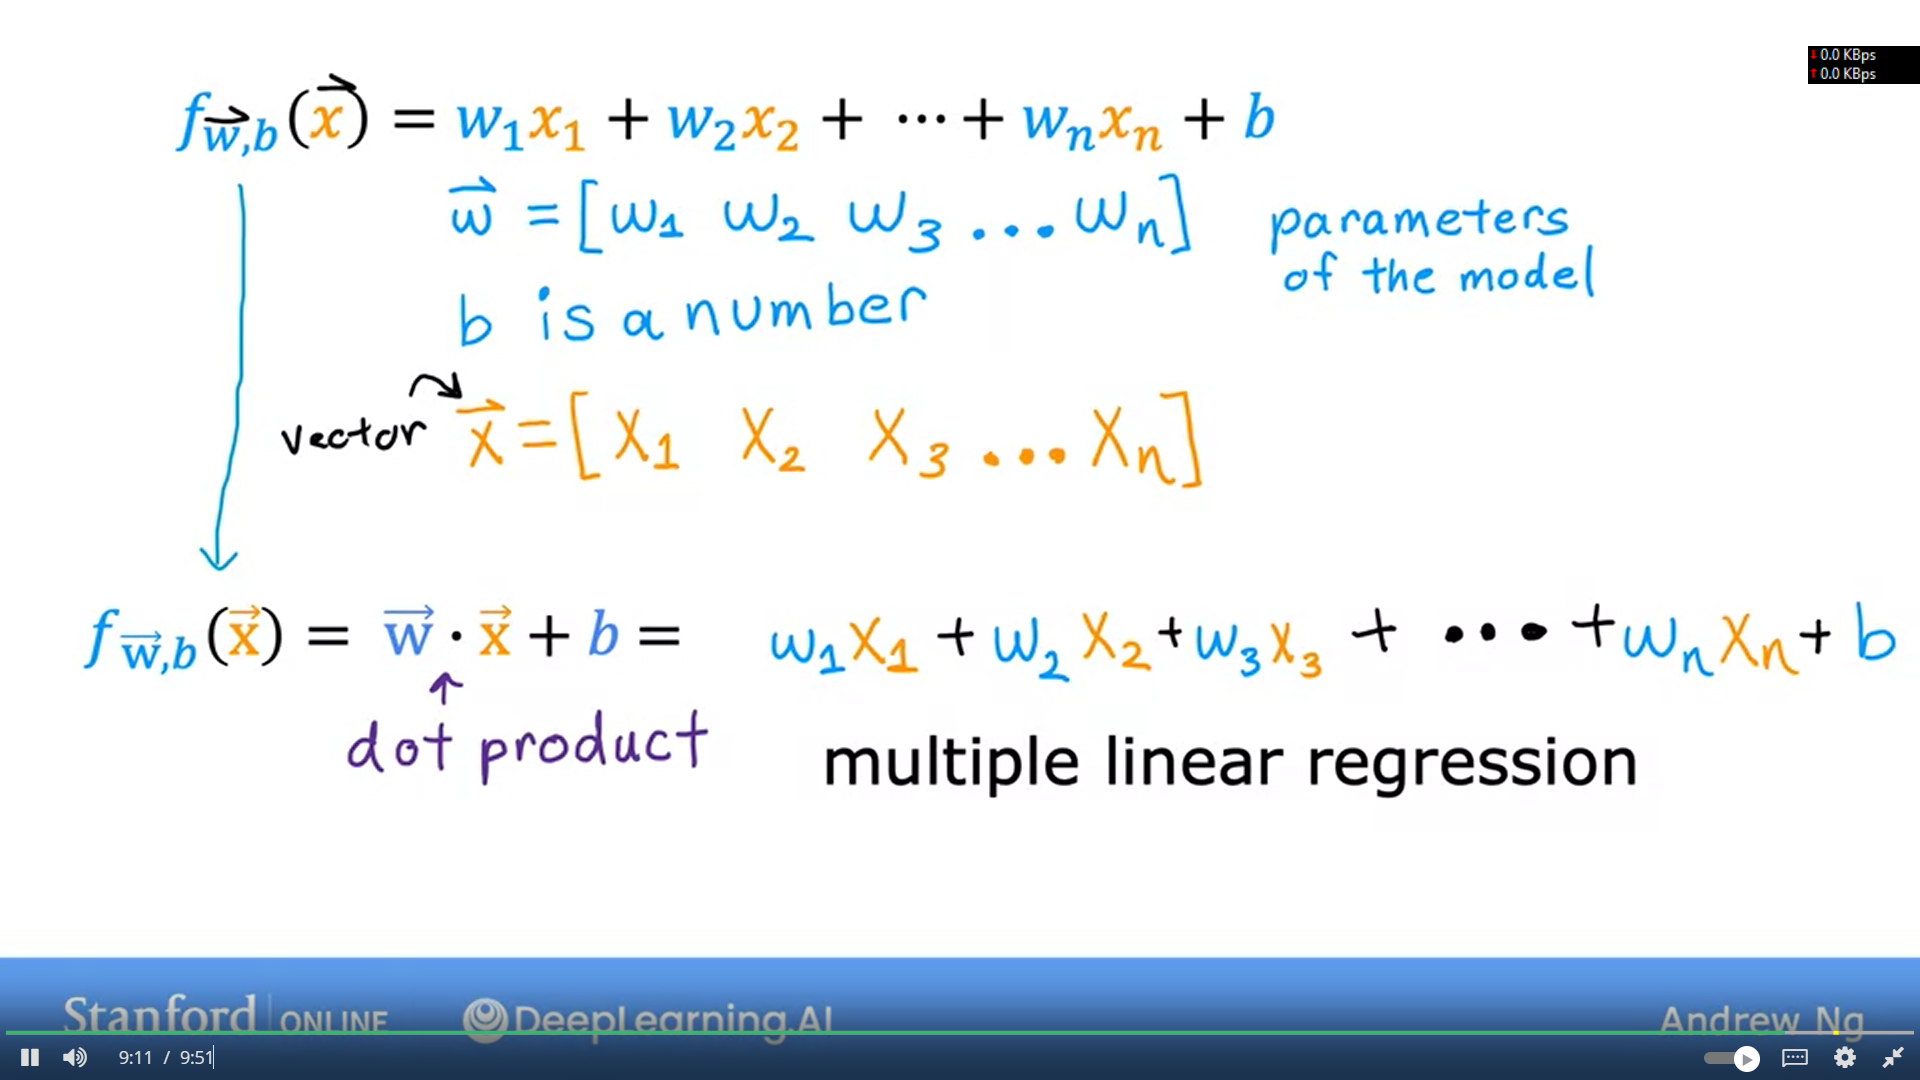 0.0 KBps
0.0 KBps
f_{\vec{w},b}(\vec{x}) = w_1x_1 + w_2x_2 + ⋯ + w_nx_n + b
\vec{w} = [w_1 w_2 w_3 ... w_n]
parameters
of the model
b is a number
vector \vec{x} = [x_1 x_2 x_3 ... x_n]
f_{\vec{w},b}(\vec{x}) = \vec{w} · \vec{x} + b = w_1x_1 + w_2x_2 + w_3x_3 + ... + w_nx_n + b
dot product
multiple linear regression
Stanford | ONLINE DeepLearning.AI Andrew Ng
9:11 / 9:51